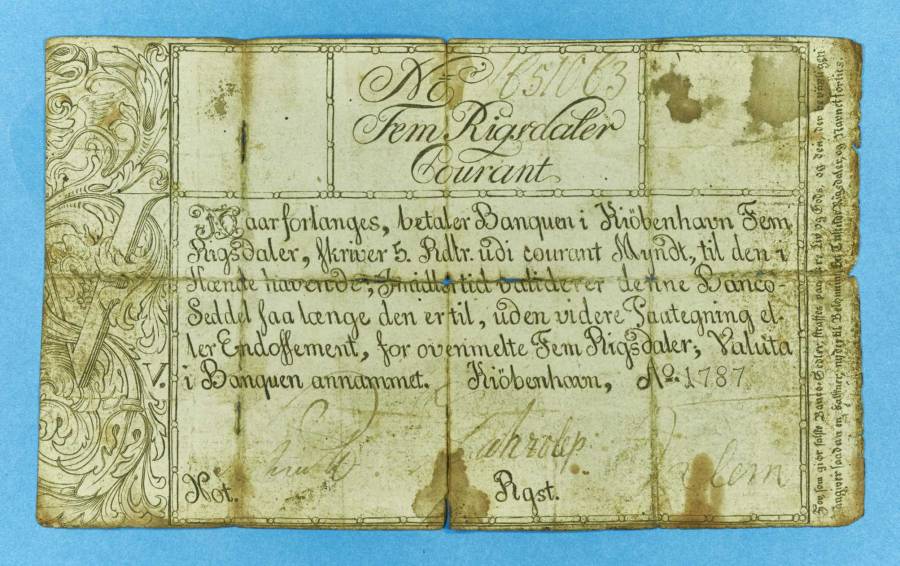 No 651063
Fem Rigsdaler
Courant
Naar forlanges, betaler Banquen i Kiöbenhavn Fem
Rigsdaler, skriver 5. Rdlr. udi courant Myndt, til den i
Hænde havende; Imidlertid validerer denne Banco-
Seddel saa længe den er til, uden videre Paategning el-
ler Endossement, for ovenmelte Fem Rigsdaler; Valuta
i Banquen annammet. Kiöbenhavn, Ao. 1787
V.
Not. Rgst.
Hvo som giör falske Banco-Sedler, straffes paa Ære, Liv og Gods, og den, der
angiver saadan en Falskner, nyder til Belönning Rigsdaler, og Navnet forties.